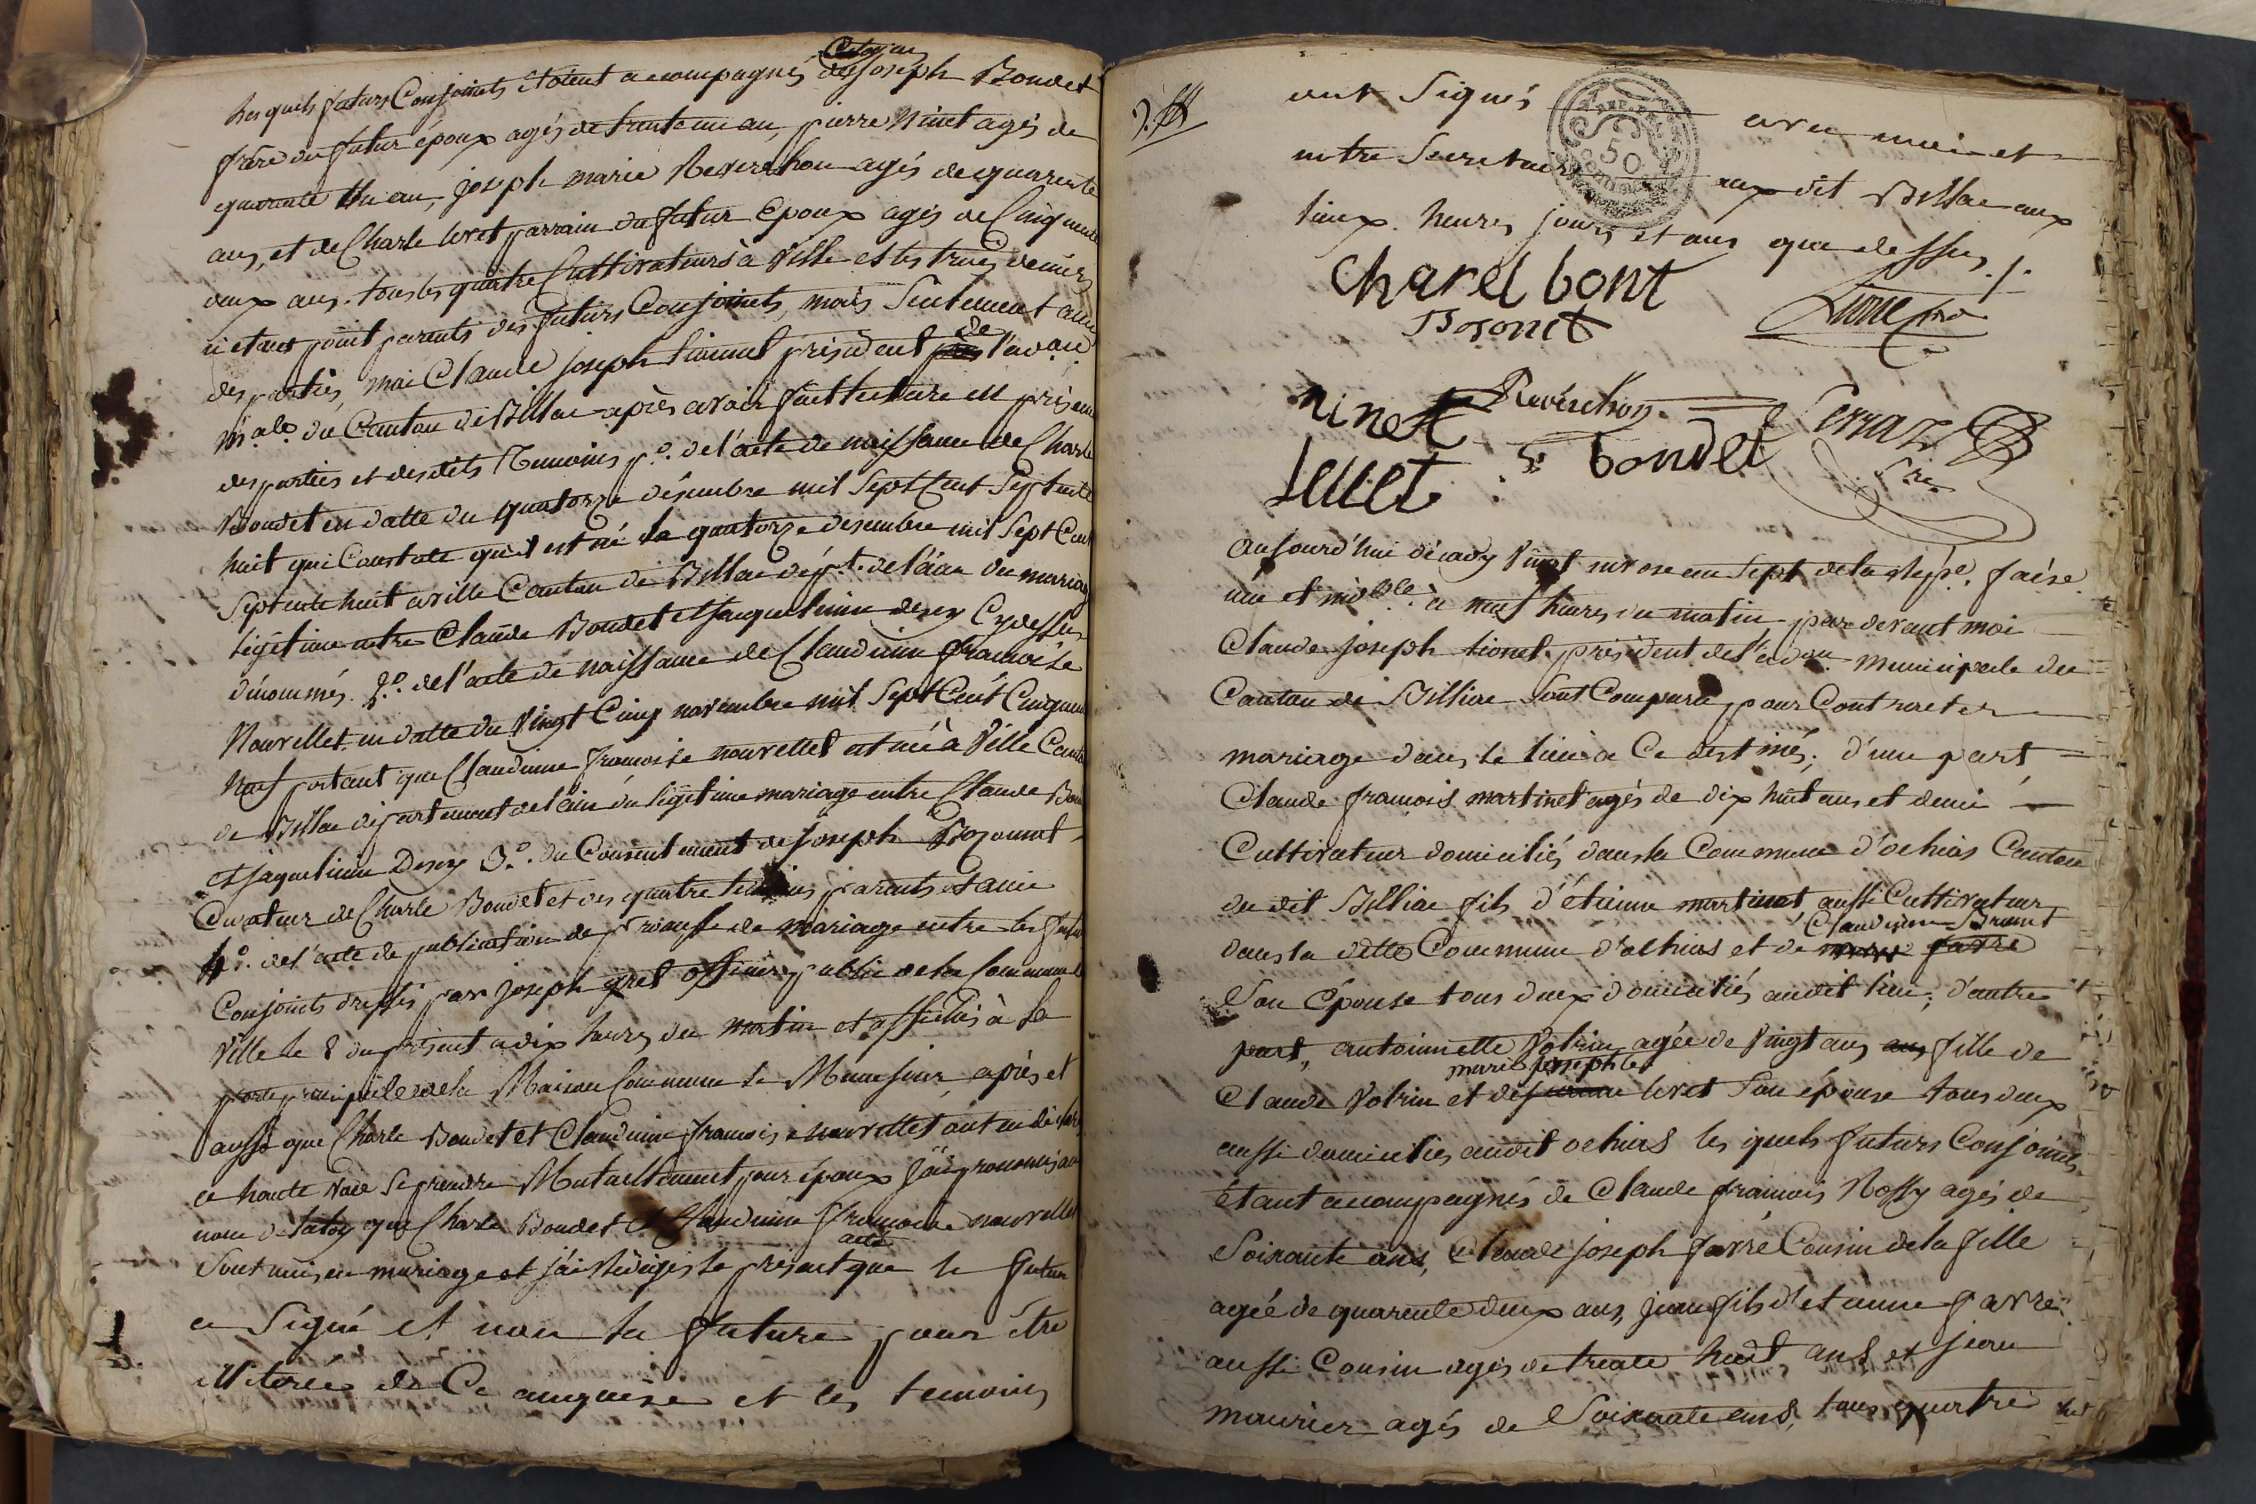 Citoyen
Lesquels futurs Conjoints étoient accompagnés de Joseph Bondet
frère du futur époux agés de trente un an, pierre Ninet agés de
quarante un an, joseph marie Reverchon agés de quarente
ans, et de Charle leret parrain du futur Epoux agés de Cinquente
deux ans. tous les quatre Cultivateurs à Ville et les trois derniers
n'etant point parents des futurs Conjoints, mais Seulement amis
des parties, moi Claude joseph Lionnet président de l'adon
m.ale du Canton de Billac après avoir fait lecture en présence
des parties et desdits Temoins p.o de l'acte de naissance de Charle
Bondet en datte du quatorze désembre mil Sept Cent Septente
huit qui Constate qu'il est né le quatorze desembre mil Sept Cent
Septente huit a ville Canton de Billac dép.t de l'ain du mariage
legitime entre Claude Bondet et Jaquelinne desey Cydessus
dénommés. 2.o de l'acte de naissance de Claudinne françoise
Nourellet en datte du Vingt Cinq novembre mil Sept Cent Cinquente
Neuf portant que Claudinne francoise nourellet est née à Ville Canton
de Billac département de l'ain du légitime mariage entre Claude Bon
et Jaquelinne Desey 3.o du Consentement de Joseph Bozonnet
Curateur de Charle Bondet et des quatre temoins parents et amis
4.o de l'acte de publication de promesse de mariage entre les futurs
Conjoints dressés par joseph gret officier public de la Commune de
Ville le 8 du présent a dix heures du matin et affichés à la
porte principale de la Maison Commune le Meme jour après et
aussi que Charle Bondet et Claudinne francoise nourellet ont eu déclaré
a haute voix Se prendre Mutuellement pour époux J'ai prononcé au
nom de la loy que Charle Bondet et Claudinne francoise nourellet
Sont unis en mariage et j'ai rédigés le présent acte que le futur
a Signé et non la future pour être
illiterée de Ce enquise et les temoins
ont Signés avec moi et
notre Secretaire aux dit Billac aux
lieux heures jours et ans que dessus ./.
50
Charel bont
Bozonet
Lionet
ninet
Reverchon
Perraz
S.re
Leret
bondet
aujourd'hui décady Vingt nivose an Sept de la Rép.e faise
une et indi.ble à neuf heures du matin par devant moi
Claude joseph Lionet président de l'adon municipale du
Canton de Billiac Sont Comparu pour Contracter
mariage dans le lieu a Ce destiné; d'une part
Claude francois martinet agés de dix huit ans et demi
Cultivateur domiciliés dans la Commune d'ochias Canton
du dit Billiac fils d'étienne martinet aussi Cultivateur
dans la ditte Commune d'ochias et de Claudinne Brunet
Son Epouse tous deux domiciliés audit lieu; d'autre
part, antoinnette Volrin agée de Vingt ans fille de
Claude Volrin et de marie josephte leret Son épouse tous deux
aussi domicilies audit ochias les quels futurs Conjoints
étant acompagnés de Claude francois Rossy agés de
Soixante ans, Claude joseph favre Cousin de la fille
agée de quarente deux ans, jean fils d'etienne favre
aussi Cousin agés de trente huit ans et jean
maurier agés de Soixante ans, tous quatre